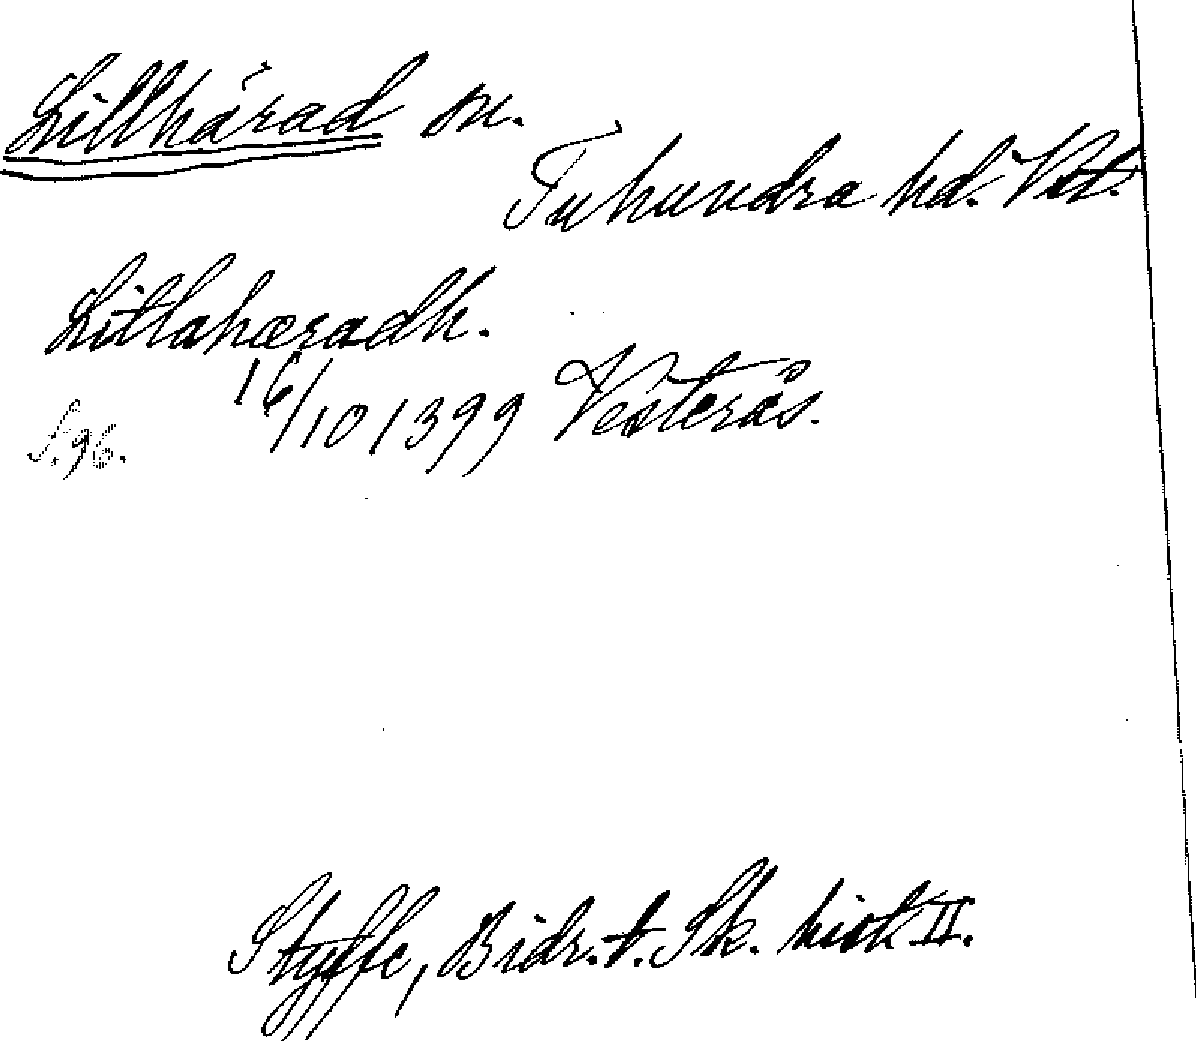 Lillhärad sn.
Tuhundra hd. Vst.
Litlahæradh.
16/10 1399 Vesterås.
S. 96.
Styffe, Bidr. t. Sk. hist II.